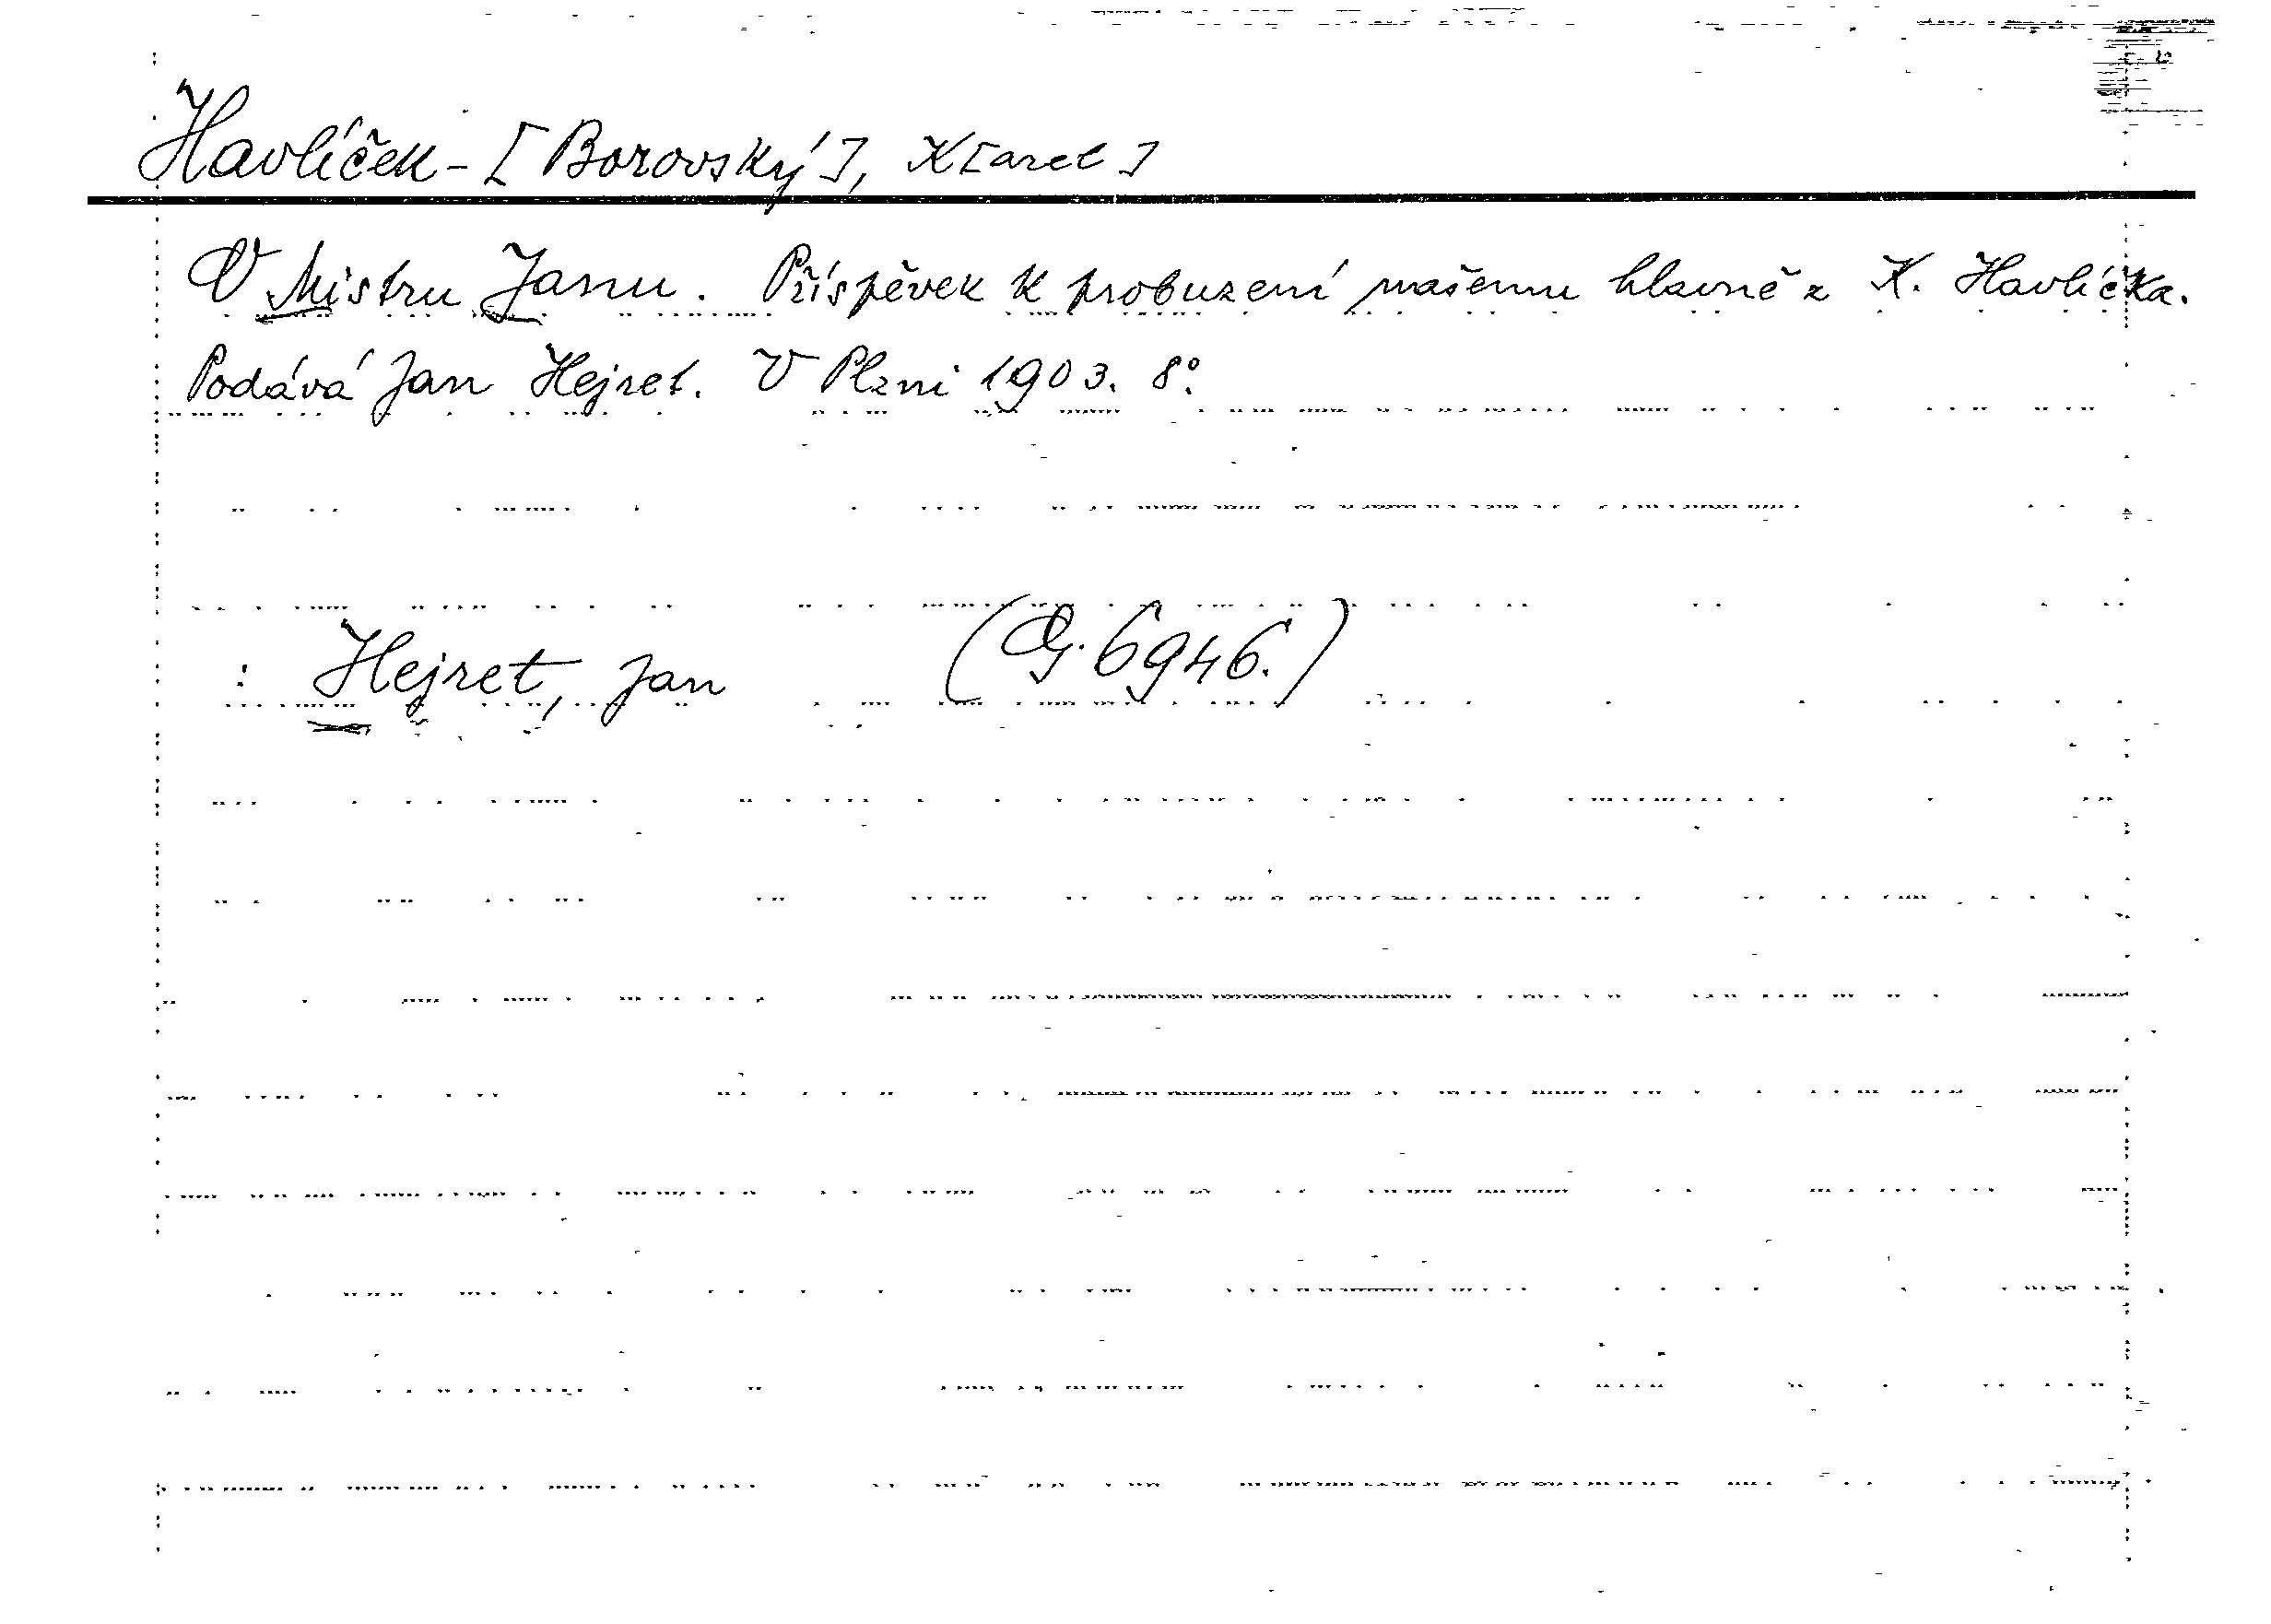 Havlíček - [Borovský], K[arel]
V Mistru Janu. Příspěvek k probuzení našemu hlavně z K. Havlíčka.
Podává Jan Hejret. V Plzni 1903. 8°.
: Hejret, Jan (G. 6946.)